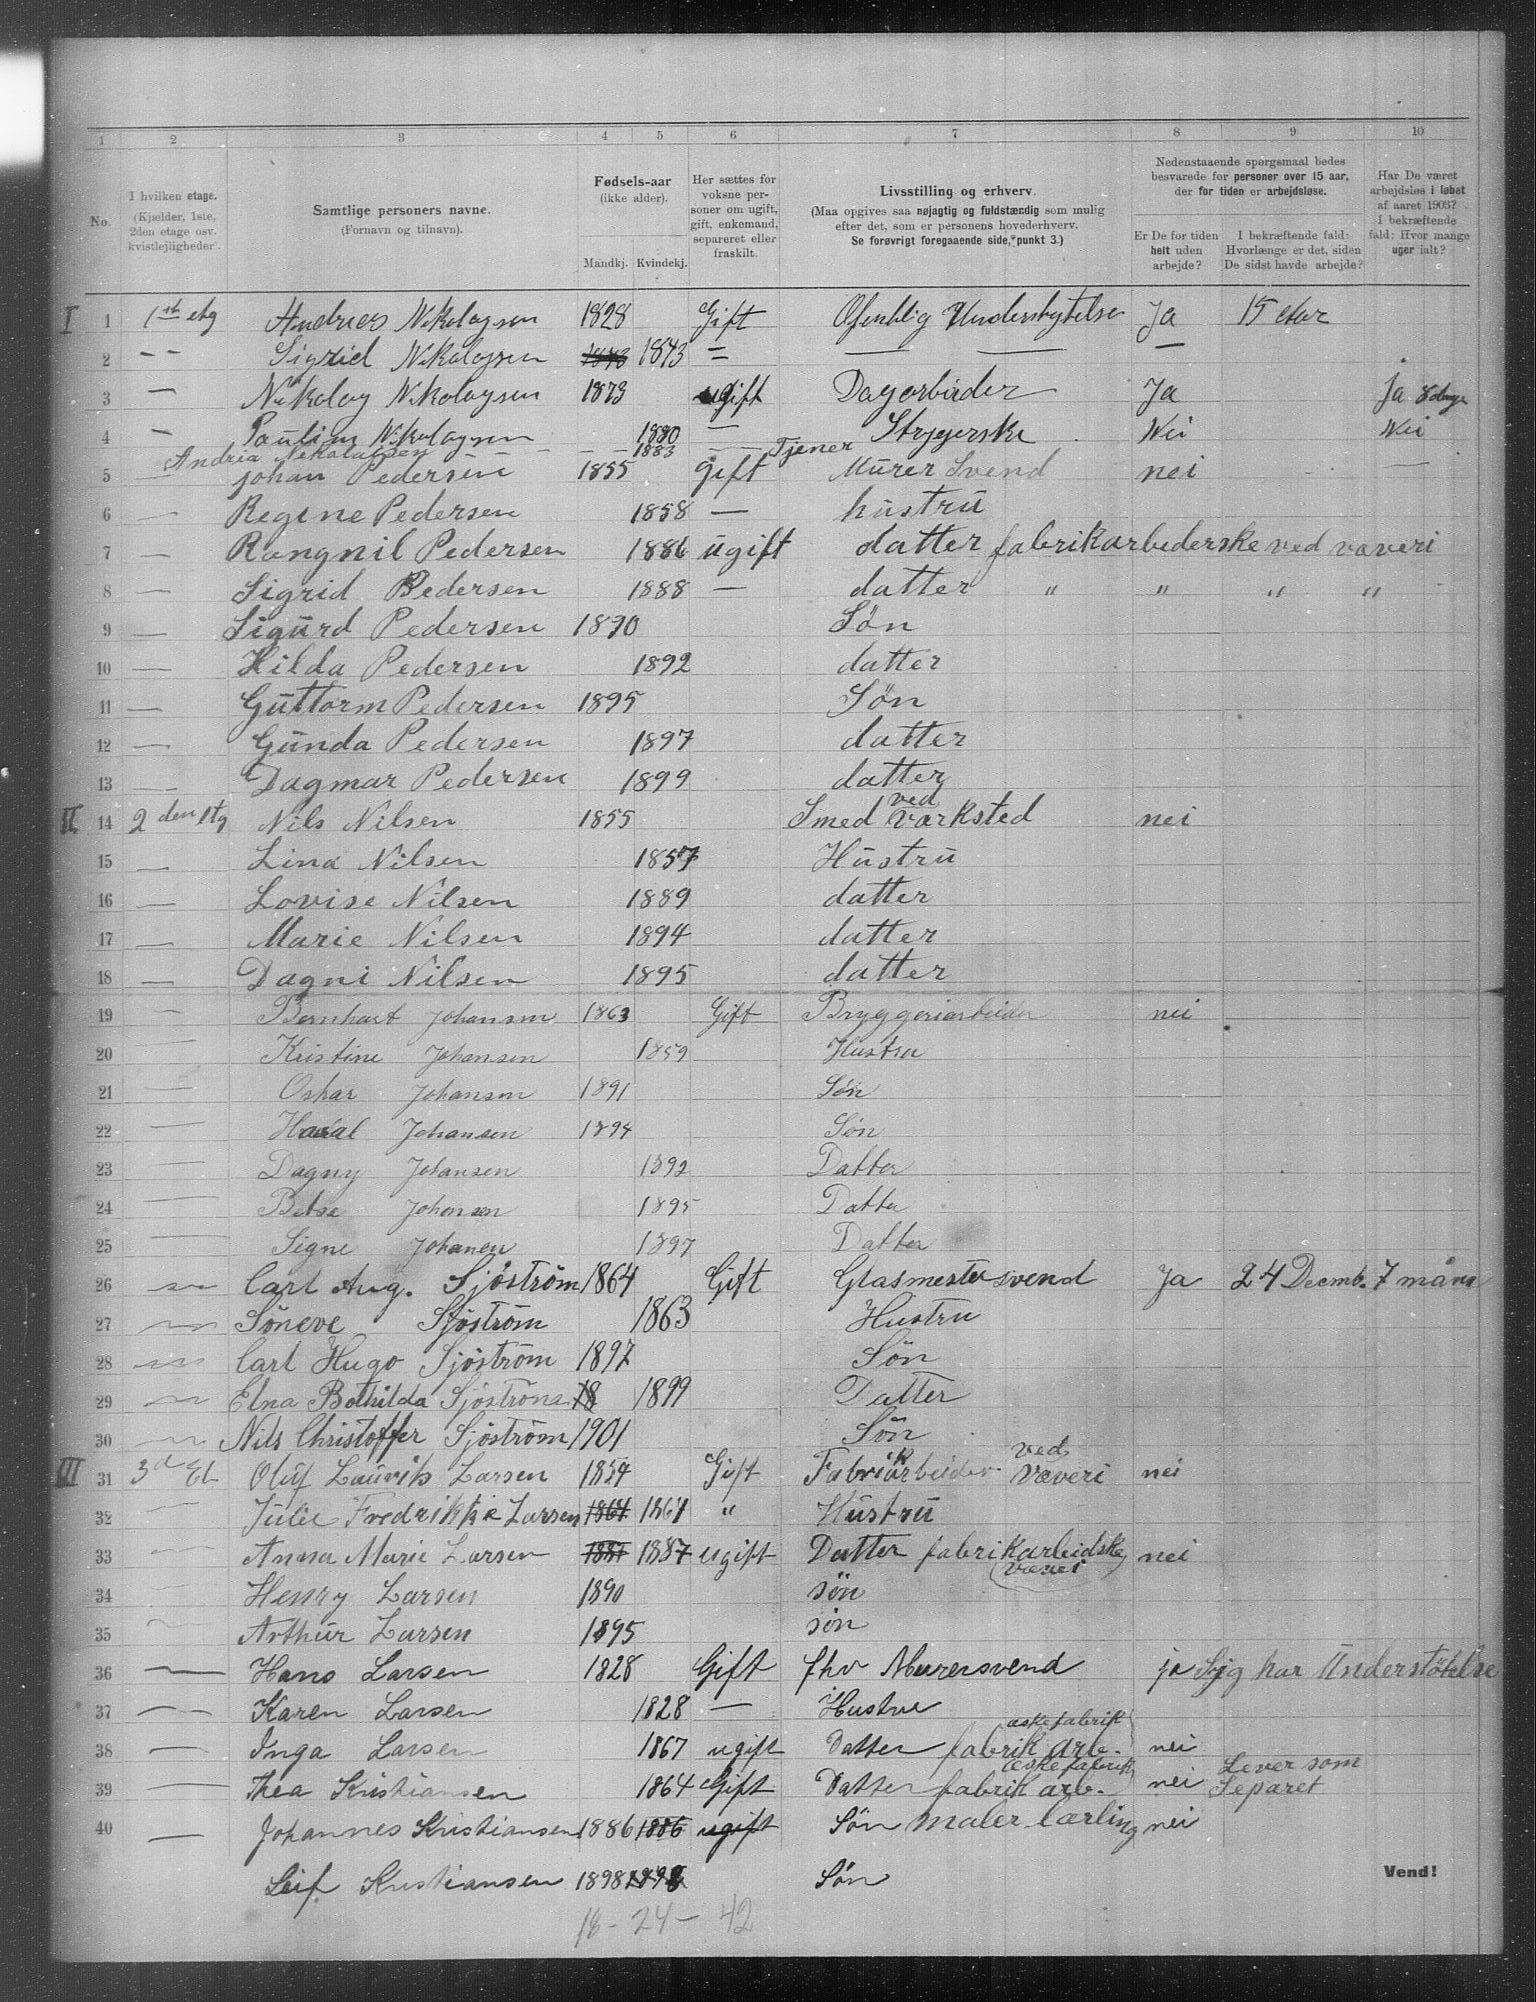 1 2 3 4 5 6 7 8 9 10
No.
I hvilken etage. (Kjælder, 1ste, 2den etage osv. kvistleiligheder).
Samtlige personers navne. (Fornavn og tilnavn).
Fødsels-aar (ikke alder). Mandkj. Kvindekj.
Her sættes for voksne personer om ugift, gift, enkemand, separeret eller fraskilt.
Livsstilling og erhverv. (Maa opgives saa nøjagtig og fuldstændig som mulig efter det, som er personens hovederhverv. Se forøvrigt foregaaende side, punkt 3.)
Nedenstaaende spørgsmaal bedes besvarede for personer over 15 aar, der for tiden er arbejdsløse.
Er De for tiden helt uden arbejde?
I bekræftende fald: Hvorlænge er det, siden De sidst havde arbejde?
Har De været arbejdsløs i løbet af aaret 1903? I bekræftende fald: Hvor mange uger ialt?
I 1 1ste etg Andreas Nikolaysen 1828 Gift Ofentlig Understytelse Ja 15 etar
2 - - Sigrid Nikolaysen 1843 1843 = — — —
3 — Nikolay Nikolaysen 1873 ugift Dagarbirder Ja Ja 8 dage
4 — Paulim Nikolaysen 1880 — Strygerske Nei Nei
Andria Nikolaisen - - - 1883 — Tjener
5 — johan Pedersen 1855 gift Murer Svend nei —
6 — Regine Pedersen 1858 — hustru
7 — Rangnil Pedersen 1886 ugift datter fabrikarbederske ved væveri
8 — Sigrid Pedersen 1888 — datter " " " "
9 — Sigurd Pedersen 1890 Søn
10 — Hilda Pedersen 1892 datter
11 — Guttorm Pedersen 1895 Søn
12 — Gunda Pedersen 1897 datter
13 — Dagmar Pedersen 1899 datter
II 14 2den Etg Nils Nilsen 1855 Smed ved Værksted nei
15 — Lina Nilsen 1857 Hustru
16 — Lovise Nilsen 1889 datter
17 — Marie Nilsen 1894 datter
18 — Dagni Nilsen 1895 datter
19 — Bernhart Johansen 1863 Gift Bryggeriarbeider nei
20 — Kristine Johansen 1859 Hustru
21 — Oskar Johansen 1891 Søn
22 — Johansen 1894 Søn
23 — Dagny Johansen 1892 Datter
24 — Betse Johansen 1895 Datter
25 — Signe Johanen 1897 Datter
26 — Carl Aug. Sjöström 1864 Gift Glasmestersvend Ja 24 Decmb. 7 måna
27 — Söneve Sjöström 1863 Hustru
28 — Carl Hugo Sjöström 1897 Søn
29 — Elna Bothilda Sjöströms 18 1899 Datter
30 — Nils Christoffer Sjöström 1901 Søn
III 31 3d Et Oluf Lauvits Larsen 1854 Gift Fabrikarbeider ved Væveri nei
32 Julie Fredrikke Larsen 1864 1864 " Hustru
33 — Anna Marie Larsen 1887 1887 ugift Datter fabrikarbeidske (væveri nei
34 — Henry Larsen 1890 søn
35 — Arthur Larsen 1895 søn
36 — Hans Larsen 1828 Gift fhv Murersvend ja Syg har Understötelse
37 — Karen Larsen 1828 — Hustru
38 — Inga Larsen 1867 ugift Datter fabrik arb. æskefabrik nei
39 — Thea Kristiansen 1864 Gift Datter fabrik arb. æskefabrik nei Lever som Separet
40 — Johannes Kristiansen 1886 1886 ugift Søn maler lærling nei
Leif Kristiansen 1898 1898 Søn
Vend!
18 - 24 - 42